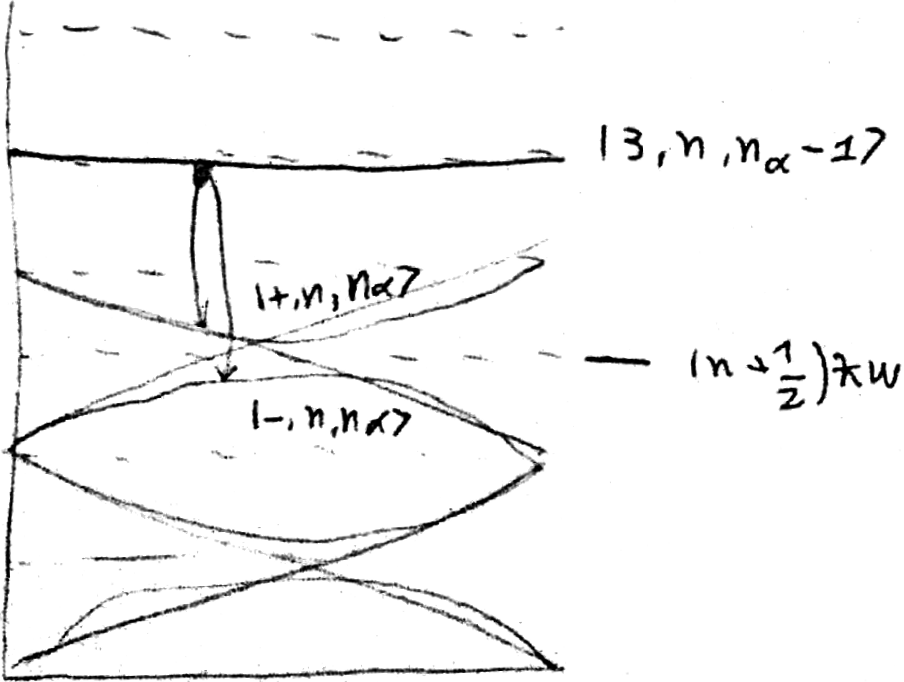 |3, n, nα-1>
|+, n, nα>
(n + 1/2)ħw
|-, n, nα>